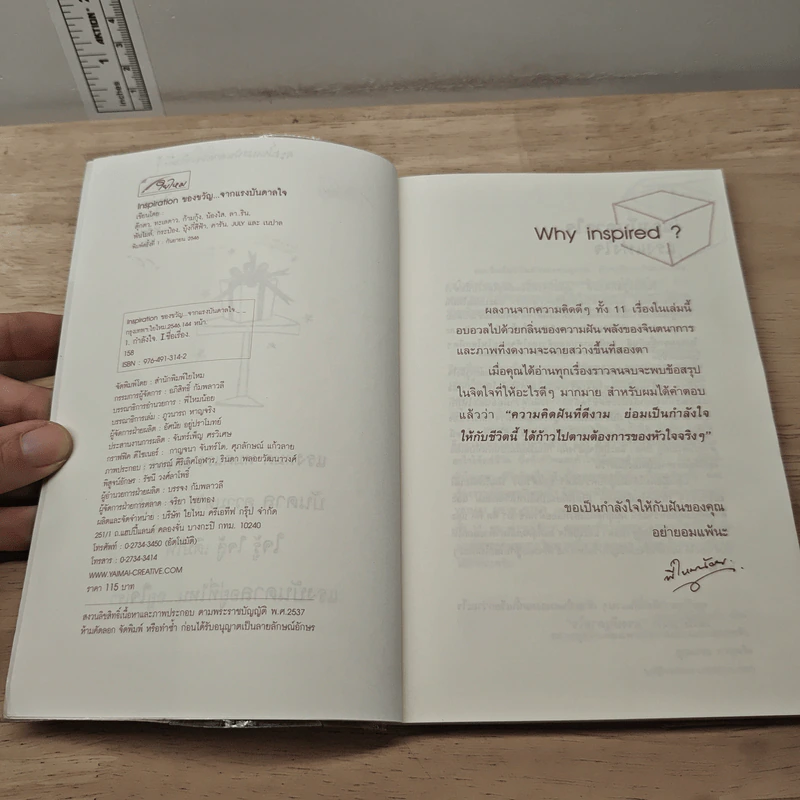 inches
1
2
3
4
ใยไหม
Inspiration ของขวัญ...จากแรงบันดาลใจ
เขียนโดย :
ตุ๊กตา, ทะเลดาว, ก้ามกุ้ง, น้องใส, ดา.ริน,
กระป๋อง, ปุ้งกี๋สีฟ้า, ดาริน, JULY และ เนปาล
พิมพ์ครั้งที่ 1 : กันยายน 2546
Inspiration ของขวัญ...จากแรงบันดาลใจ.__
กรุงเทพฯ:ใยไหม,2546.144 หน้า.
1. กำลังใจ. I.ชื่อเรื่อง.
158
ISBN : 976-491-314-2
จัดพิมพ์โดย : สำนักพิมพ์ใยไหม
กรรมการผู้จัดการ : อภิสิทธิ์ กัมพลาวลี
บรรณาธิการอำนวยการ : พี่ใหม่น้อย
บรรณาธิการเล่ม : ภูวนารถ หาญจริง
ผู้จัดการฝ่ายผลิต : อัศนัย อยู่ปราโมทย์
ประสานงานการผลิต : จันทร์เพ็ญ ศรวิเศษ
กราฟฟิค ดีไซเนอร์ : กาญจนา จันทร์โต, ศุภลักษณ์ แก้วลาย
ภาพประกอบ : วราภรณ์ ศิริเลิศโอฬาร, รินดา พลอยวัฒนาวงศ์
พิสูจน์อักษร : รัชนี วงศ์ลาโพธิ์
ผู้อำนวยการฝ่ายผลิต : บรรจง กัมพลาวลี
ผู้จัดการฝ่ายการตลาด : จริยา ไชยทอง
ผลิตและจัดจำหน่าย : บริษัท ใยไหม ครีเอทีฟ กรุ๊ป จำกัด
251/1 ถ.แฮปปี้แลนด์ คลองจั่น บางกะปิ กทม. 10240
โทรศัพท์ : 0-2734-3450 (อัตโนมัติ)
โทรสาร : 0-2734-3414
WWW.YAIMAI-CREATIVE.COM
ราคา 115 บาท
สงวนลิขสิทธิ์เนื้อหาและภาพประกอบ ตามพระราชบัญญัติ พ.ศ.2537
ห้ามคัดลอก จัดพิมพ์ หรือทำซ้ำ ก่อนได้รับอนุญาตเป็นลายลักษณ์อักษร
Why inspired ?
ผลงานจากความคิดดีๆ ทั้ง 11 เรื่องในเล่มนี้
อบอวลไปด้วยกลิ่นของความฝัน พลังของจินตนาการ
และภาพที่งดงามจะฉายสว่างขึ้นที่สองตา
เมื่อคุณได้อ่านทุกเรื่องราวจนจบจะพบข้อสรุป
ในจิตใจที่ให้อะไรดีๆ มากมาย สำหรับผมได้คำตอบ
แล้วว่า “ความคิดฝันที่ดีงาม ย่อมเป็นกำลังใจ
ให้กับชีวิตนี้ ได้ก้าวไปตามต้องการของหัวใจจริงๆ”
ขอเป็นกำลังใจให้กับฝันของคุณ
อย่ายอมแพ้นะ